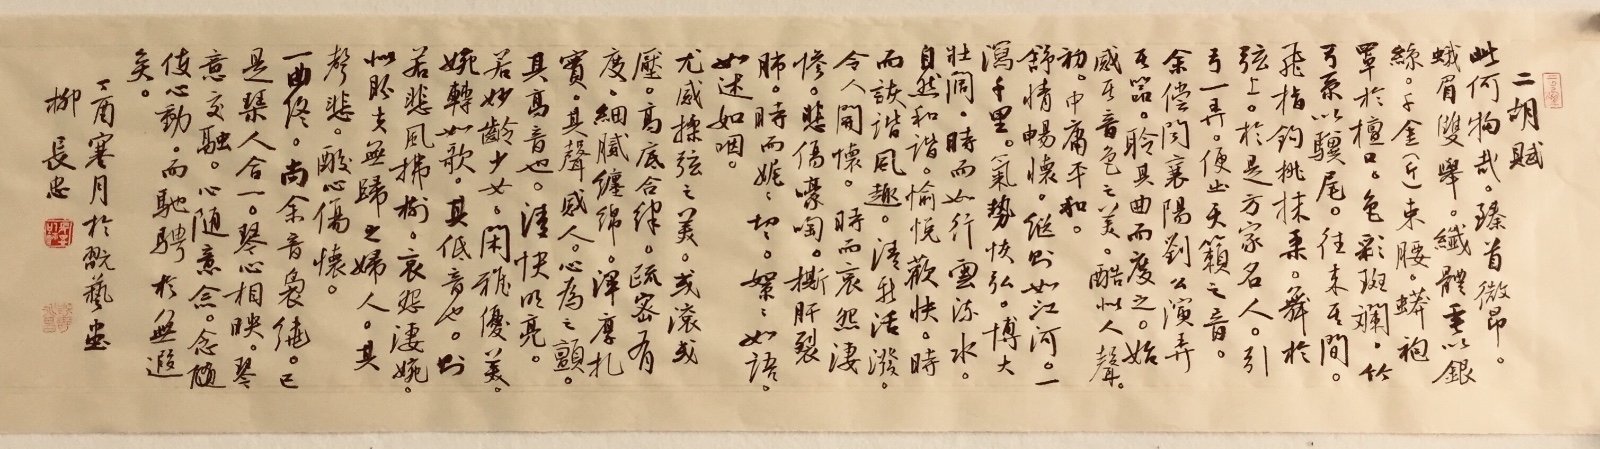 二胡賦
此何物哉。臻首微昂。
蛾眉雙舉。纖體垂以銀
絲。千金(斤)束腰。蟒袍
罩於檀口。色彩斑斓。竹
弓系以驥尾。往来其間。
飛指鈎挑抹柔。舞於
弦上。於是方家名人。引
弓一弄。便出天籟之音。
余偿聞襄陽劉公演弄
其器。聆其曲而度之。始
感其音色之美。酷似人聲。
初。中庸平和。
舒情暢懷。縱则如江河。一
瀉千里。氣勢恢弘。博大
壯闊。時而如行雲流水。
自然和谐。愉悦歡快。時
而詼谐風趣。清新活潑。
令人開懷。時而哀怨淒
惨。悲傷嚎啕。撕肝裂
肺。時而娓娓切切。絮絮如語。
如述如咽。
尤感揉弦之美。或滚或
壓。高底合律。疏密有
度。細膩纏綿。渾厚扎
實。其聲感人。心為之顫。
其高音也。清快明亮。
若妙齡少女。閑雅優美。
婉轉如歌。其低音也。則
若悲風拂樹。哀怨淒婉。
似盼夫無歸之婦人。其
聲悲。酸心傷懷。
一曲终。尚余音袅繞。已
是琴人合一。琴心相映。琴
意交融。心随意念。念随
使心動。而馳騁於無遐
矣。
丁酉寒月於翫藝堂
柳長忠